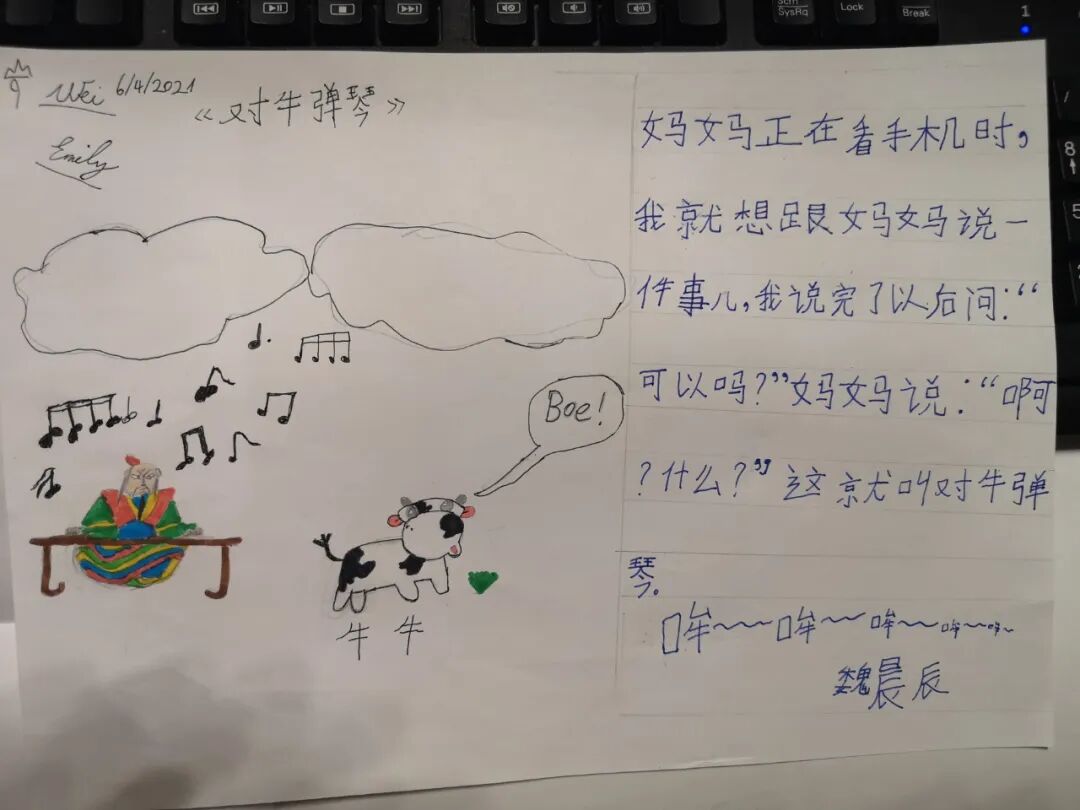 Wei 6/4/2021
《对牛弹琴》
Emily
Boe!
牛牛
妈妈正在看手机时，
我就想跟妈妈说一
件事儿，我说完了以后问：“
可以吗？”妈妈说：“啊
？什么？”这就叫对牛弹
琴.
哞~~哞~哞~哞~哞~
魏晨辰
Scrn
SysRq
Lock
Break
1
8
5